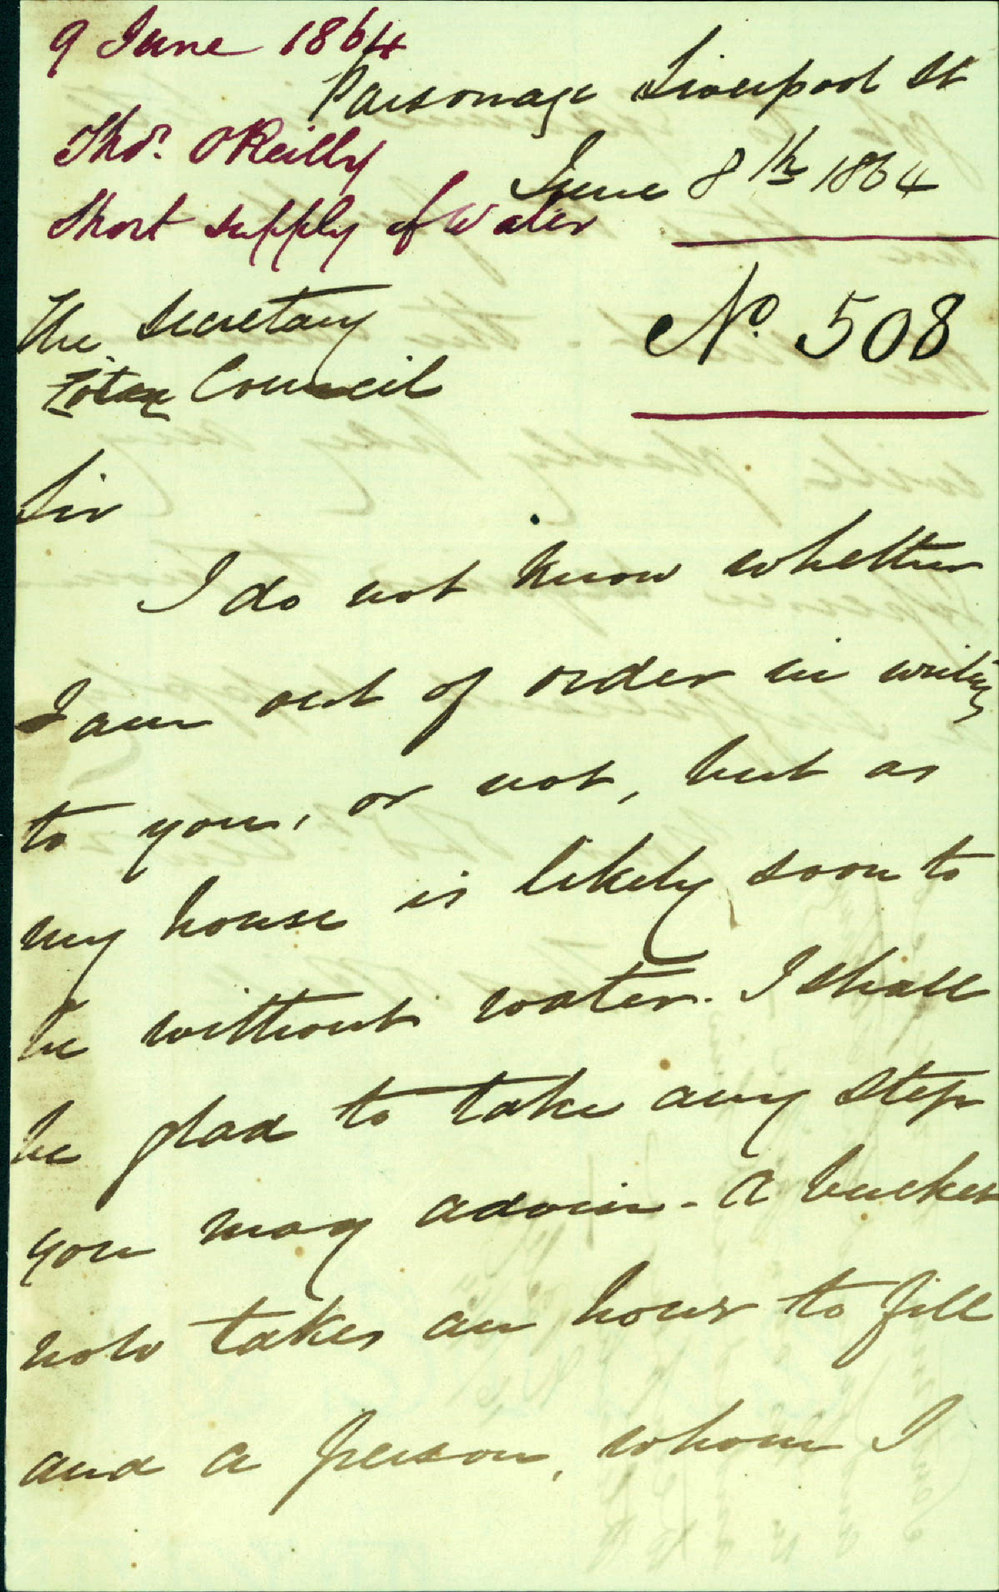 9 June 1864
Parsonage Liverpool St
Thos. O'Reilly
June 8th 1864
Short supply of Water
The Secretary
No. 508
Council
Sir
I do not know whether
I am out of order in writing
to you, or not, but as
my house is likely soon to
be without water. I shall
be glad to take any step
you may advise - A bucket
now takes an hour to fill
and a person, whom I